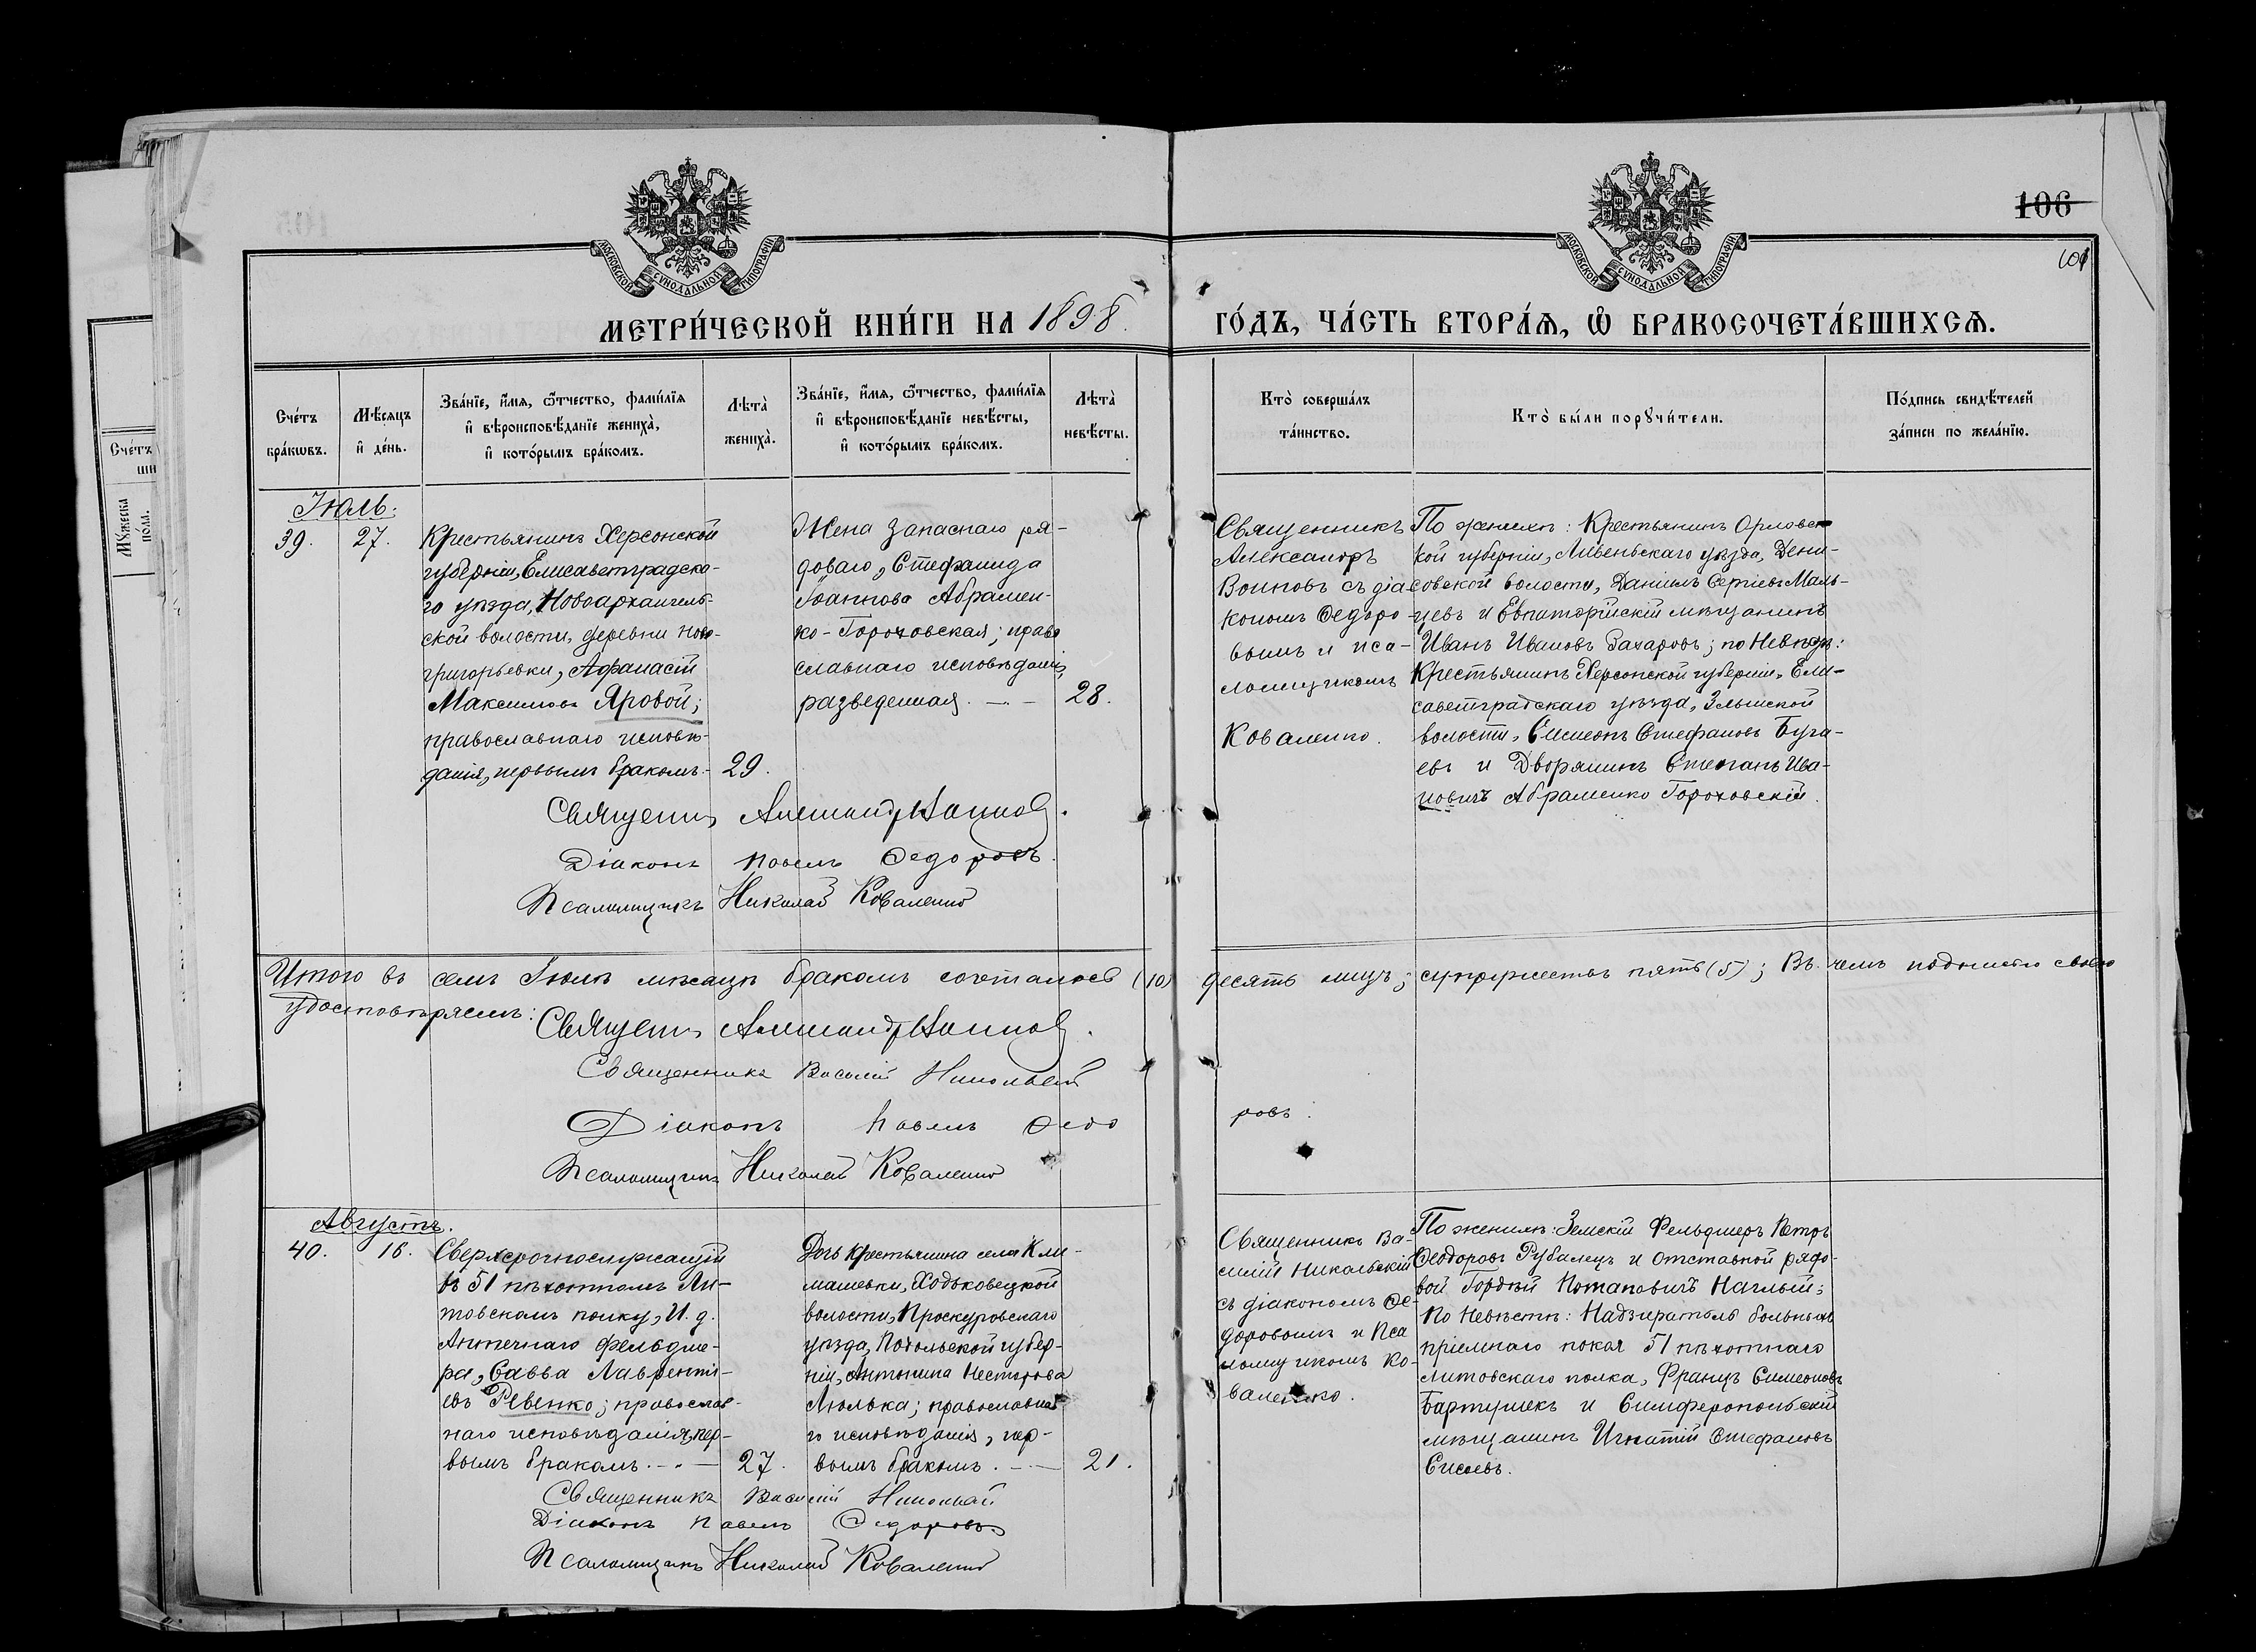 106
101
МОСКОВСКОЙ СѴНОДАЛЬНОЙ ТИПОГРАФІИ
МОСКОВСКОЙ СѴНОДАЛЬНОЙ ТИПОГРАФІИ
МЕТРИ́ЧЕСКОЙ КНИ́ГИ НА 1898. ГО́ДЪ, ЧА́СТЬ ВТОРА́Я, Ѽ БРАКОСОЧЕТА́ВШИХСЯ.
Сче́тъ бра́кѡвъ.
Мѣ́сяцъ и де́нь.
Зва́нїе, и́мя, ѻ҆́тчество, фами́лїя
и вѣроисповѣ́данїе жениха̀,
и кото́рымъ бра́комъ.
Лѣта̀ жениха̀.
Зва́нїе, и́мя, ѻ҆́тчество, фами́лїя
и вѣроисповѣ́данїе невѣ́сты,
и кото́рымъ бра́комъ.
Лѣта̀ невѣ́сты.
Кто̀ соверша́лъ та́инство.
Кто̀ бы́ли порꙋчи́тели.
По́дпись свидѣ́телей
за́писи по жела́нїю.
Сче́тъ
Мꙋ́жеска по́ла.
Іюль.
39. 27.
Крестьянинъ Херсонской
губерніи, Елисаветградска-
го уѣзда, Новоархангель-
ской волости, деревни Ново-
григорьевки, Афанасій
Максимовъ Яровой;
православнаго исповѣ-
данія, первымъ бракомъ.- 29.
Жена запаснаго ря-
доваго, Стефанида
Іоаннова Абрамен-
ко-Гороховская; право
славнаго исповѣданія,
разведенная. - - 28.
Священникъ
Александръ
Воиновъ съ діа
кономъ Федоро-
вымъ и пса-
ломщикомъ
Коваленко.
По женихѣ: Крестьянинъ Орловс
кой губерніи, Ливеньскаго уѣзда, Дени-
совской волости, Даніилъ Сергіевъ Маль-
цевъ и Евпаторійскій мѣщанинъ
Иванъ Ивановъ Захаровъ; по Невѣстѣ:
Крестьянинъ Херсонской губерніи, Ели-
саветградскаго уѣзда, Злынской
волости, Симеонъ Стефановъ Буга-
евъ и Дворянинъ Степанъ Ива-
новичъ Абраменко Гороховскій.
Священникъ Александръ Воиновъ.
Діаконъ Павелъ Федоровъ.
Псаломщикъ Николай Коваленко
Итого въ семъ Іюлѣ мѣсяцѣ бракомъ сочталось (10) десять лицъ; супружествъ пять (5); Въ чемъ подписью своею
удостовѣряемъ:
Священникъ Александръ Воиновъ.
Священникъ Василій Никольскій
Діаконъ Павелъ Федо ровъ.
Псаломщикъ Николай Коваленко
Августъ.
40. 16.
Сверхсрочнослужащій
въ 51 пѣхотномъ Ли-
товскомъ полку, И. д.
Аптечнаго фельдше-
ра, Савва Лаврентi-
евъ Ревенко; православ-
наго исповѣданія, пер-
вымъ бракомъ. - 27.
Дочь крестьянина села Кли-
машевки, Ходьковецкой
волости, Проскуровскаго
уѣзда, Подольской губер-
ніи, Антонина Несторова
Люлька; православна-
го исповѣданія, пер-
вымъ бракомъ. - 21.
Священникъ Ва-
силій Никольскій
съ діакономъ Фе-
доровымъ и Пса
ломщикомъ Ко-
валенко.
По женихѣ: Земскій Фельдшеръ Петръ
Феодоровъ Рубалецъ и отставной рядо-
вой Гордѣй Потаповичъ Наглый;
По Невѣстѣ: Надзиратель больныхъ
пріемнаго покоя 51 пѣхотнаго
литовскаго полка, Францъ Симеоновъ
Бартушекъ и Симферопольскій
мѣщанинъ Игнатій Стефановъ
Сисоевъ.
Священникъ Василій Никольскій
Діаконъ Павелъ Федоровъ
Псаломщикъ Николай Коваленко